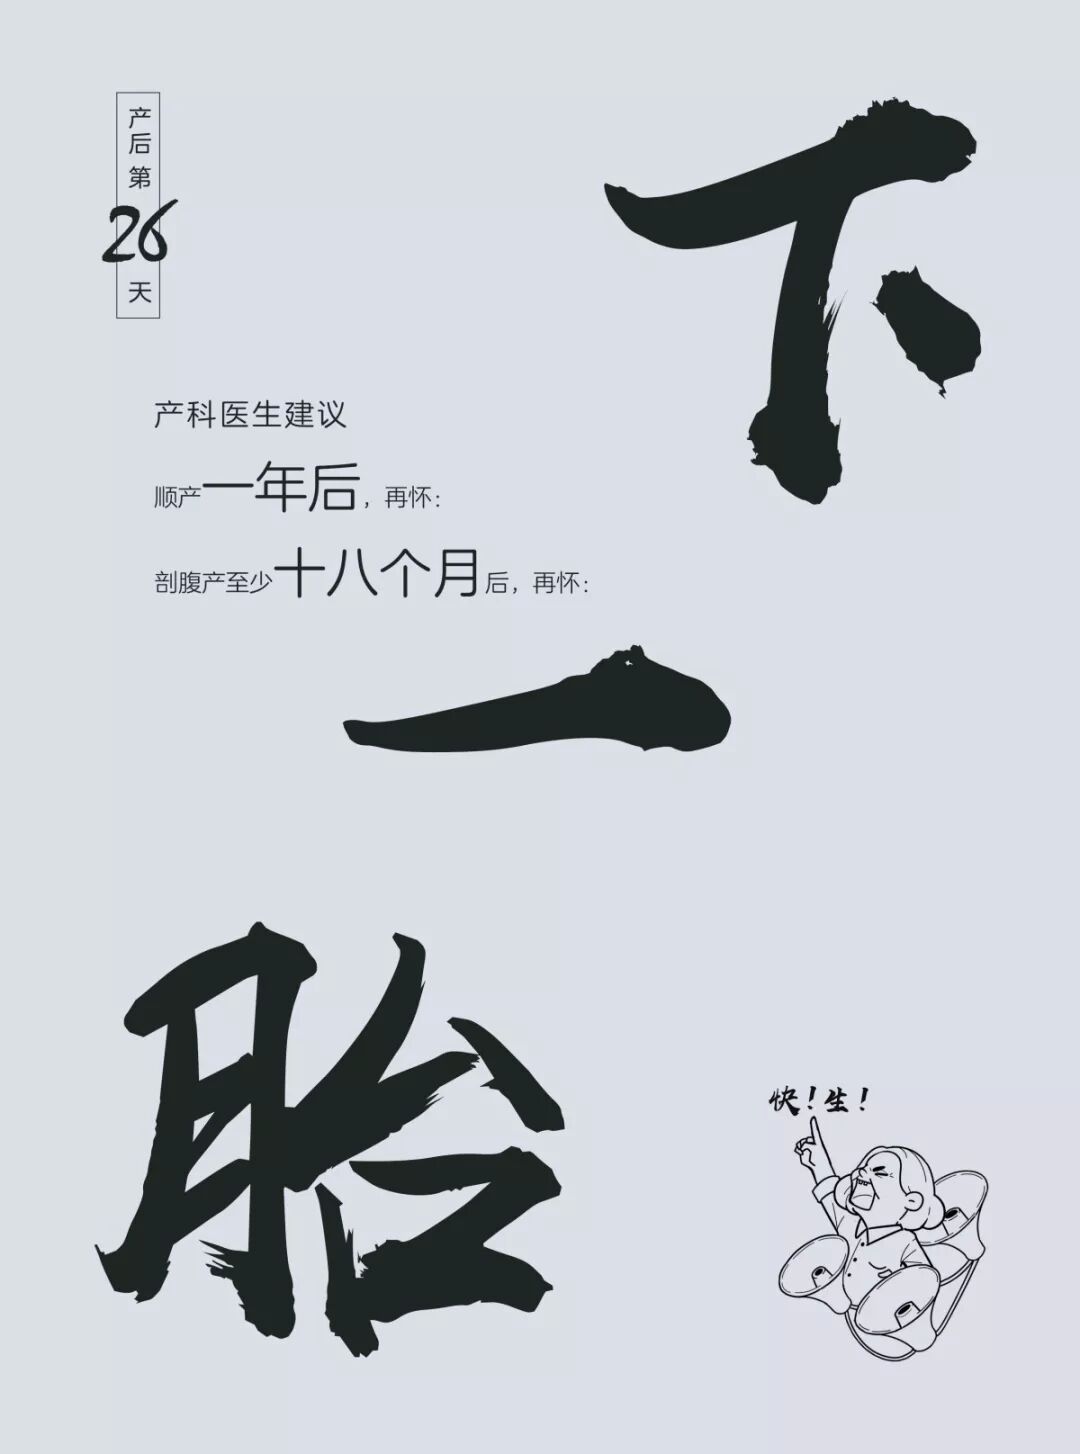 产后第26天
下
产科医生建议
顺产一年后，再怀：
剖腹产至少十八个月后，再怀：
一
胎
快！生！